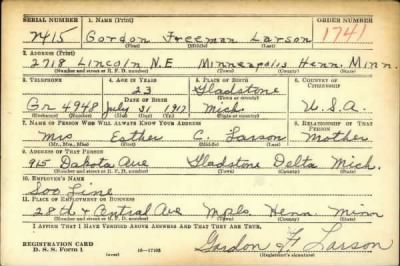 SERIAL NUMBER 1. NAME (Print) ORDER NUMBER
2415 Gordon Freeman Larson 1741
(First) (Middle) (Last)
2. ADDRESS (Print)
2718 Lincoln N.E Minneapolis Henn. Minn.
(Number and street or R. F. D. number) (Town) (County) (State)
3. TELEPHONE 4. AGE IN YEARS 5. PLACE OF BIRTH 6. COUNTRY OF CITIZENSHIP
23 Gladstone
DATE OF BIRTH (Town or county)
Gr 4948 July 31 1917 Mich. U.S.A.
(Exchange) (No.) (Mo.) (Day) (Yr.) (State or country)
7. NAME OF PERSON WHO WILL ALWAYS KNOW YOUR ADDRESS 8. RELATIONSHIP OF THAT PERSON
Mrs Esther C. Larson Mother
(Mr., Mrs., Miss) (First) (Middle) (Last)
9. ADDRESS OF THAT PERSON
915 Dakota Ave Gladstone Delta Mich.
(Number and street or R. F. D. number) (Town) (County) (State)
10. EMPLOYER'S NAME
Soo Line
11. PLACE OF EMPLOYMENT OR BUSINESS
28th & Central Ave Mpls. Henn Minn
(Number and street or R. F. D. number) (Town) (County) (State)
I AFFIRM THAT I HAVE VERIFIED ABOVE ANSWERS AND THAT THEY ARE TRUE.
REGISTRATION CARD
D. S. S. Form 1 (over) 16—17105 Gordon F. Larson
(Registrant's signature)